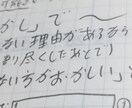 かし」で 〜
ない理由があるなら
り尽くしたあとで)
ないろがおかしい」と